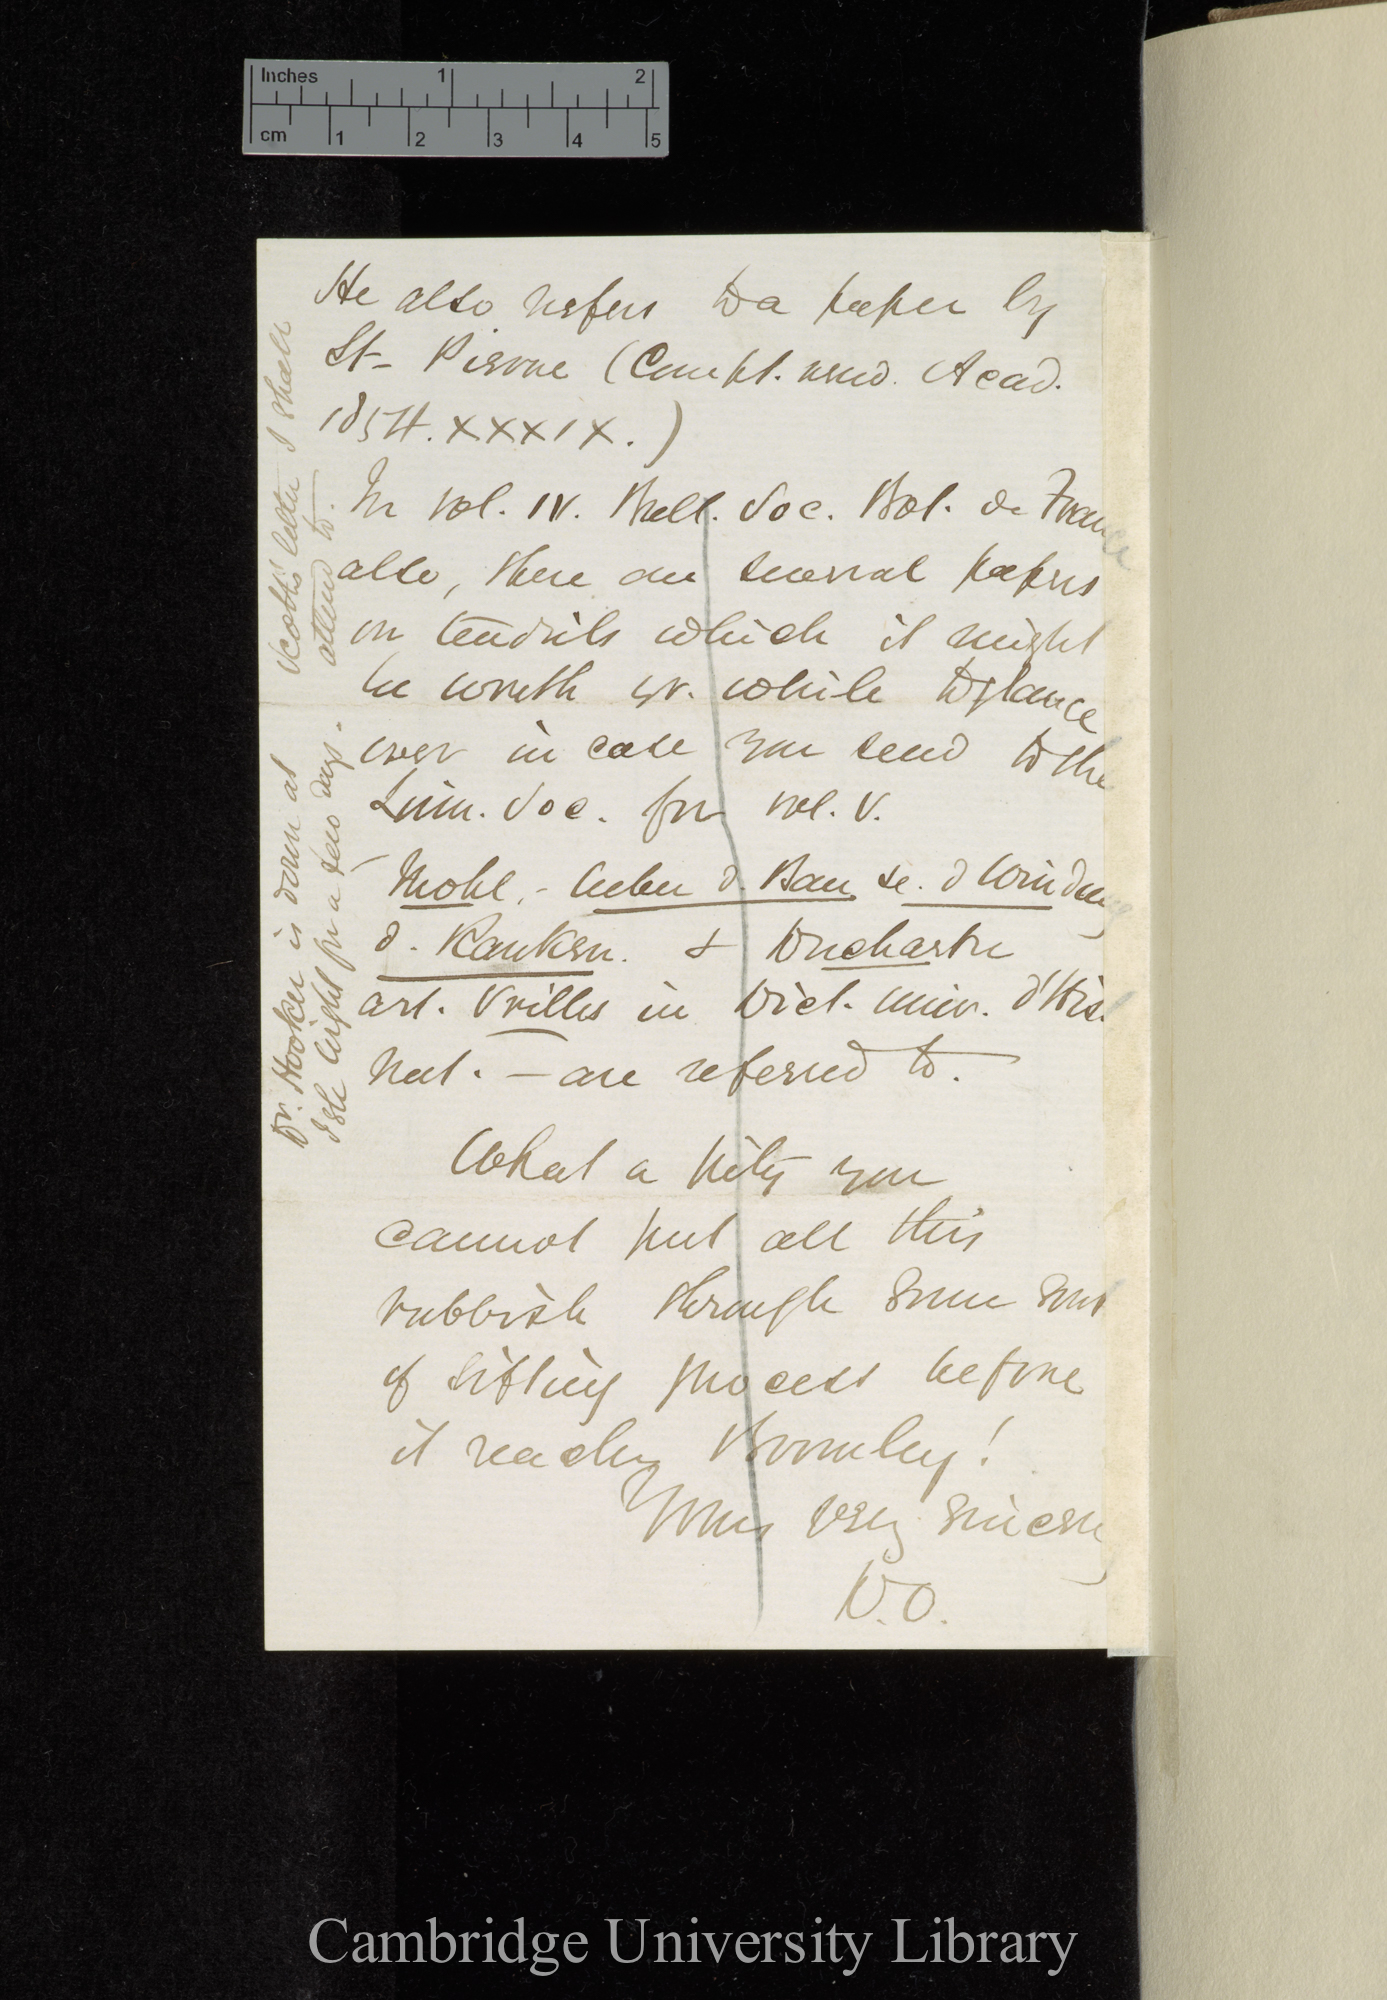 Inches 1 2
cm 1 2 3 4 5
He also refers to a paper by
St- Pierre (Compt. rend. Acad.
1854. XXXIX.)
In vol. IV. Bull. Soc. Bot. de France
also, there are several papers
on tendrils which it might
be worth yr. while to glance
over in case you send to the
Linn. Soc. for vol. V.
Mohl,- Ueber d. Bau u. d Windung
d. Ranken. & Duchartre
art. Vrilles in Dict. univ. d'Hist.
Nat. — are referred to.
What a pity you
cannot put all this
rubbish through some sort
of sifting process before
it reaches Bromley!
Yours very sincerely
D.O.
Dr. Hooker is down at
Isle Wight for a few days.
Scotts' letter I shall
attend to.
Cambridge University Library